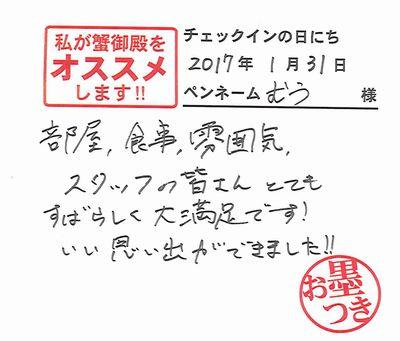 私が蟹御殿を
オススメ
します!!
チェックインの日にち
2017年 1月31日
ペンネーム むう 様
部屋, 食事, 雰囲気,
スタッフの皆さん とても
すばらしく 大満足です!
いい思い出ができました!!
お墨
つき